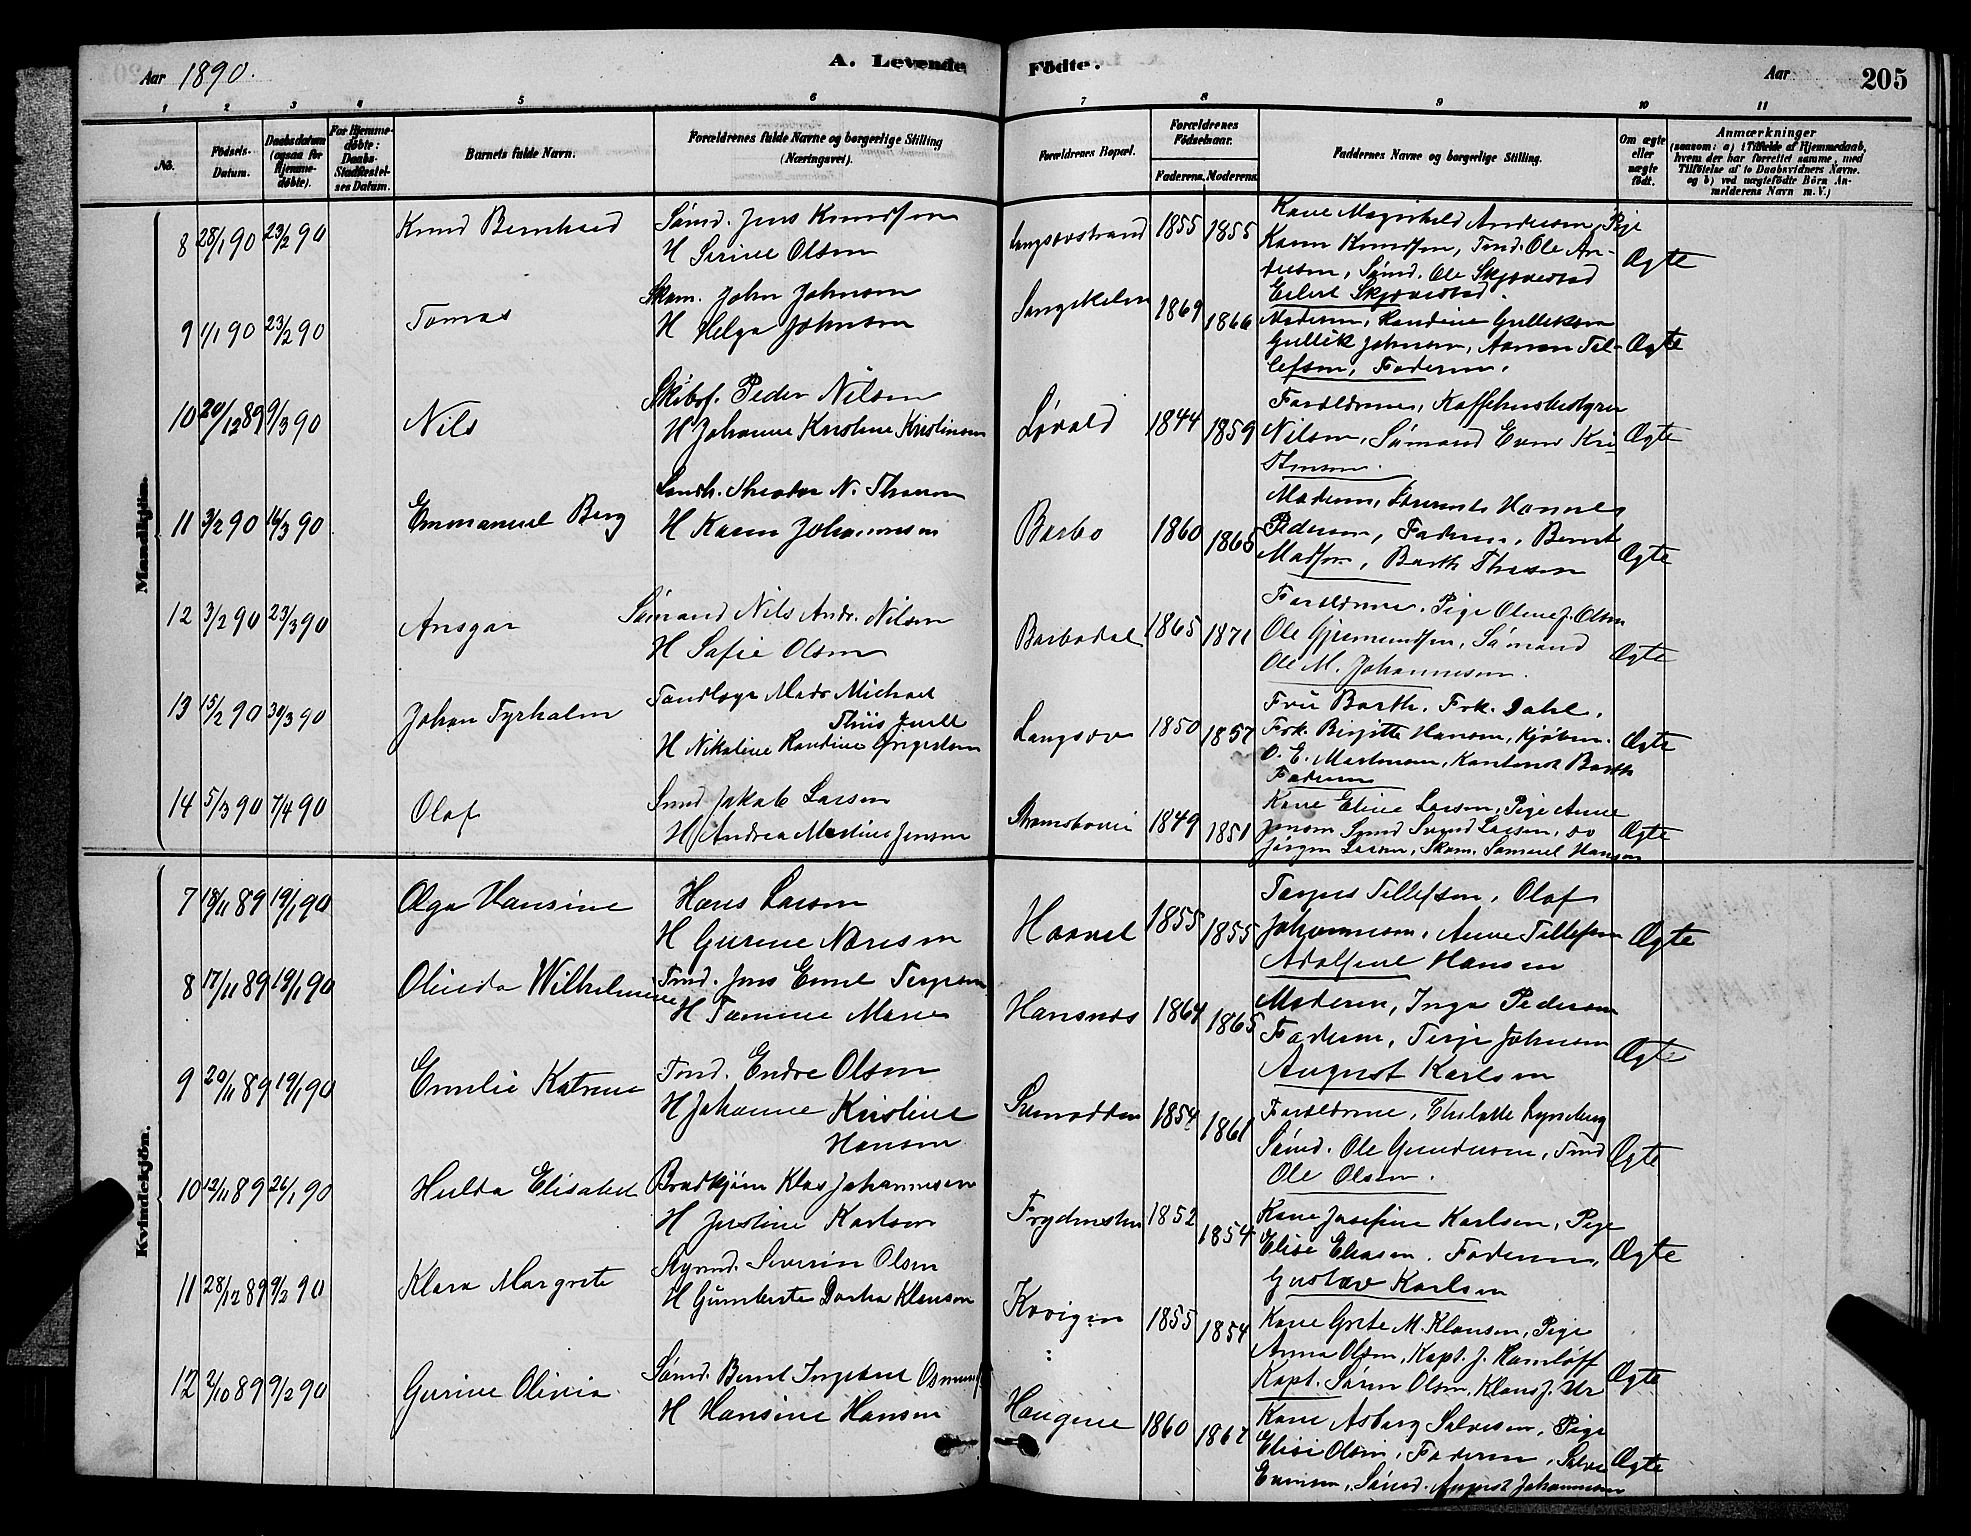 Aar 1890.
A. Levende
Födte.
Aar
205
1 2 3 4 5 6 7 8 9 10 11
No.
Födsels-
Datum.
Daabsdatum
(ogsaa for
Hjemme-
döbte).
For Hjemme-
døbte:
Daabs-
Stadfæstel-
ses Datum.
Barnets fulde Navn.
Forældrenes fulde Navne og borgerlige Stilling
(Næringsvei).
Forældrenes Bopæl.
Forældrenes
Födselsaar.
Faderens. Moderens.
Faddernes Navne og borgerlige Stilling.
Om ægte
eller
uægte
født.
Anmærkninger
(saasom: a) i Tilfælde af Hjemmedaab,
hvem der har forrettet samme, med
Tilføielse af to Daabsvidners Navne.
og b) ved uægtefödte Börn An-
melderens Navn m. V.)
Mandkjön.
8 28/1 90 23/2 90 Knud Bernhard
Sömd. Jens Knudsen
H Serine Olsen
Langsæstrand 1855 1855
Kone Magnhild Andersen, Pige
Karen Knudsen, Tmd. Ole An-
dersen, Sömd. Ole Skjævestad
Eilert Skjævestad.
Ægte
9 1/1 90 23/2 90 Tomas
Skom. John Johnsen
H Helga Johnsen
1869 1866
Moderen, Randine Gulleksen
Gullik Johnsen, Aanon Tel-
lefsen, Faderen.
Ægte
10 20/12 89 9/3 90 Nils
Skibsf. Peder Nilsen
H Johanne Kristine Kristensen
Lövold 1844 1859
Forældrene, Kaffehusbestyrer
Nilsen, Sömand Evend Kri-
stensen.
Ægte
11 3/2 90 16/3 90 Emmanuel Berg
Theodor N. Thorsen
H Karen Johannesen
Barbo 1860 1865
Moderen, Hannes
Pedersen, Faderen, Bernt
Madsen, Barth Thorsen
Ægte
12 3/2 90 23/3 90 Ansgar
Sömand Nils Andr. Nilsen
H Sofie Olsen
Barbodal 1865 1871
Forældrene, Pige Olene J. Olsen
Ole Gjermundsen, Sömand
Ole M. Johannesen.
Ægte
13 15/2 90 30/3 90 Johan Tyrholm
Tandlæge Mads Michael
Thiis Juell
H Nikoline Randine Gregersen
Langsæv 1850 1857
Fru Barth, Frk. Dahl,
Frk. Birgitte Hansen, Kjöbm.
O. E. Mortensen, Kontorist Barth
Faderen
Ægte
14 5/3 90 7/4 90 Olaf
Smd Jakob Larsen
H Andrea Martine Jensen
Strömsbuvei 1849 1851
Kone Eline Larsen, Pige Anne
Jensen Smd Svend Larsen, do
Jörgen Larsen, Skom. Samuel Hansen
Ægte
Kvindekjön.
7 18/11 89 19/1 90 Olga Hansine
Hans Larsen
H Gurine Noresen
Haavet 1855 1855
Tarjus Tellefsen, Olaf
Johannesen, Anne Tellefsen
Adolfine Hansen
Ægte
8 17/11 89 19/1 90 Olinda Wilhelmine
Tmd. Jens Emil Terjesen
H Tomine Marie
Hansnæs 1864 1865
Moderen, Inga Pedersen
Faderen, Terje Johnsen
August Karlsen
Ægte
9 20/11 89 19/1 90 Emilie Katrine
Tmd. Endre Olsen
H Johanne Kristine
Hansen
1854 1861
Forældrene, Lyneborg
Sömd. Ole Gundersen, Tmd
Ole Olsen.
Ægte
10 12/11 89 26/1 90 Hulda Elisabet
Brudkjörer Klas Johannesen
H Justine Karlsen
Frydensten 1852 1854
Kone Josefine Karlsen, Pige
Elise Eliasen, Faderen,
Gustav Karlsen
Ægte
11 28/12 89 9/2 90 Klara Margrete
Severin Olsen
H Gumberte Dorthea Klausen
Kovigen 1855 1854
Kone Grete M. Klausen, Pige
Anna Olsen, Kapt. J. Hamloff
Kapt. Sören Olsen, Klaus J. Ur
Ægte
12 2/10 89 9/2 90 Gurine Olivia
Sömd. Bernt Ingebret Osmunds.
H Hansine Hansen
Haugene 1860 1867
Kone Asborg Salvesen, Pige
Elise Olsen, Faderen, Salve
Evensen, Sömd. August Johannesen
Ægte